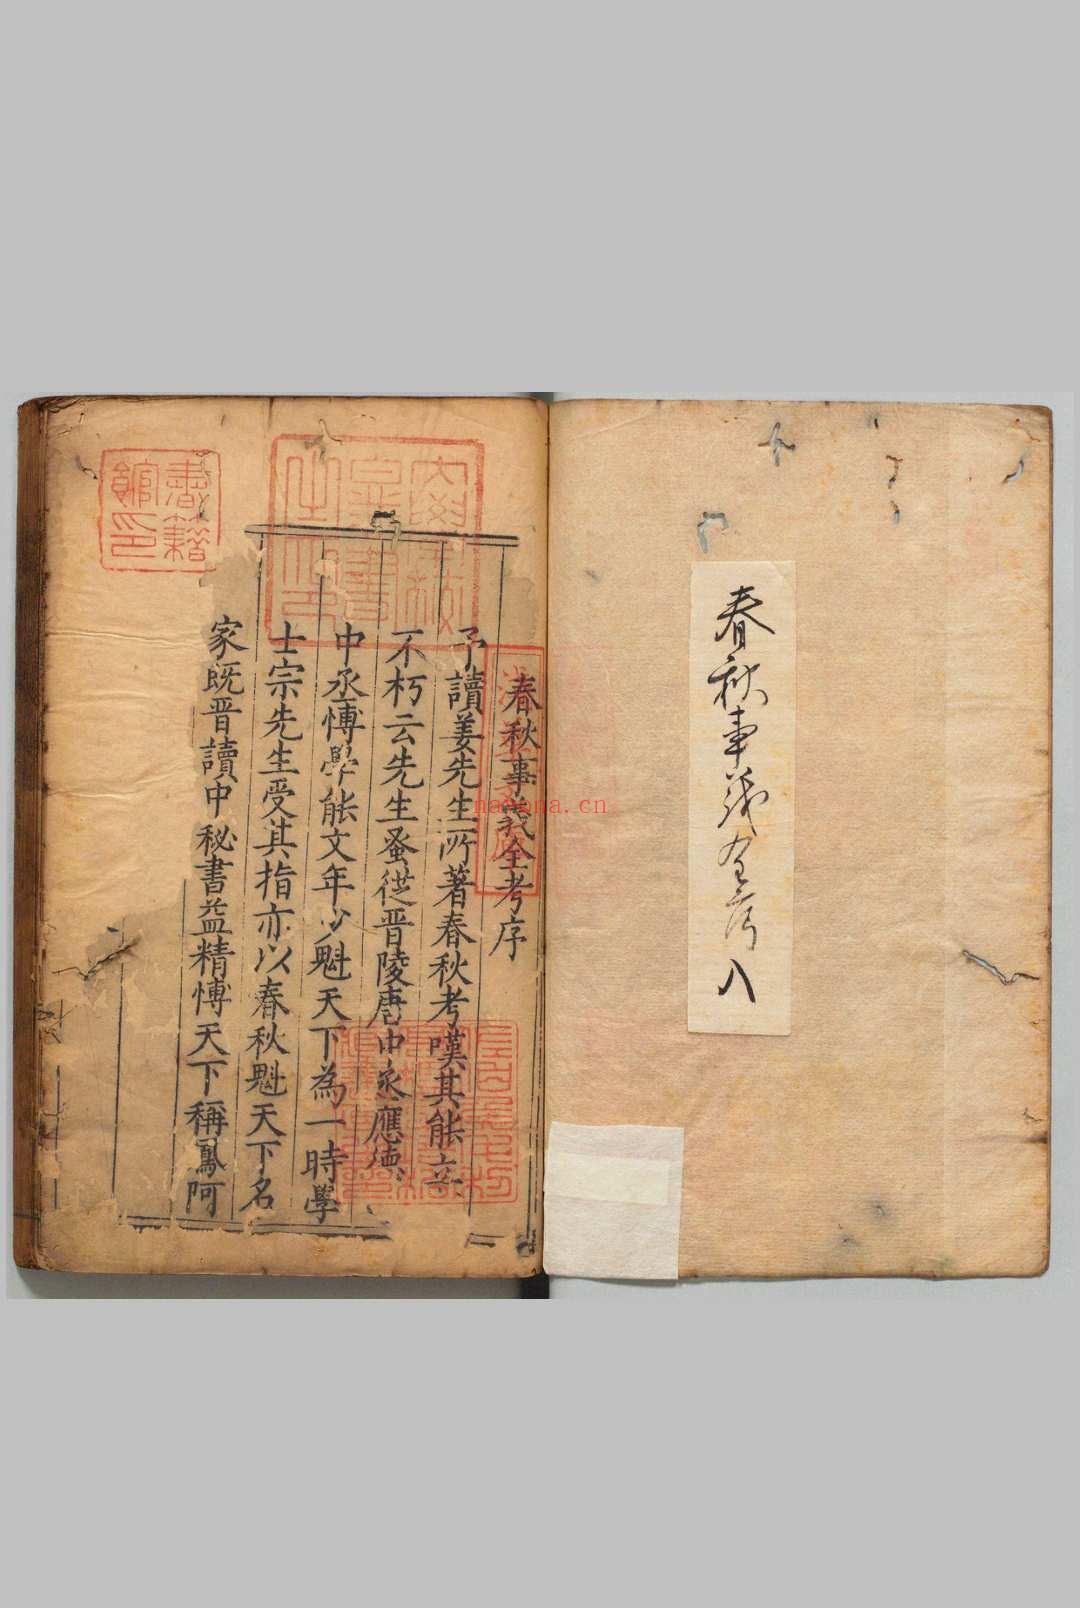 春秋事義全考 八
春秋事義全考序
予讀姜先生所著春秋考嘆其能言
不朽云先生蚤從晋陵唐中丞應德
中丞博學能文年少魁天下為一時學
士宗先生受其指亦以春秋魁天下名
家既晋讀中秘書益精博天下稱鳳阿
書籍館印